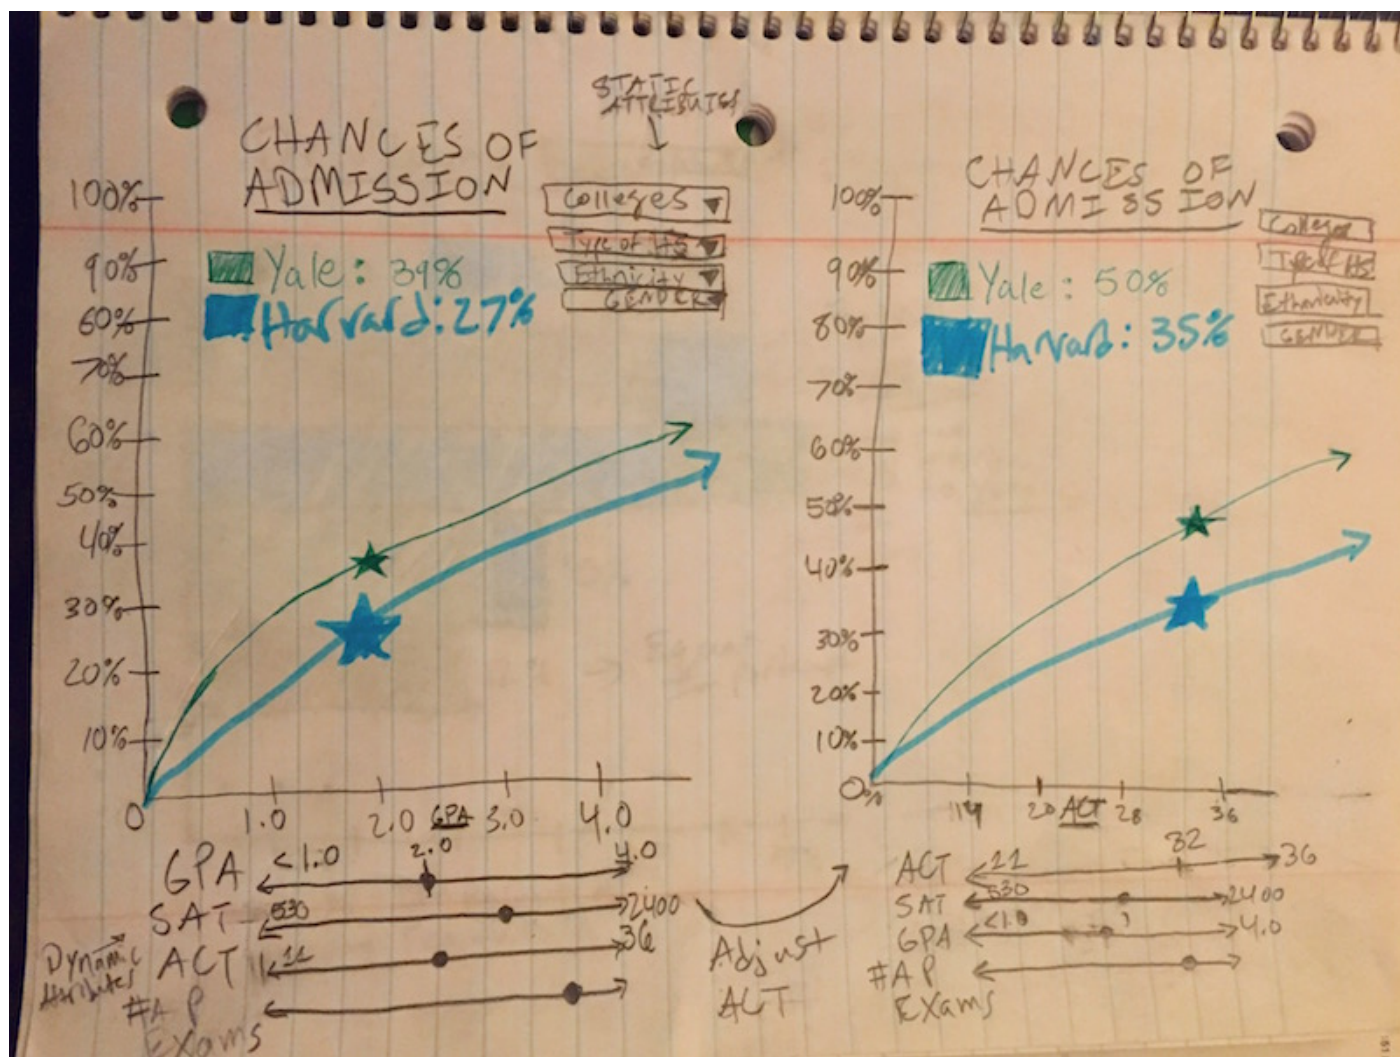 STATIC
ATTRIBUTES
CHANCES OF
ADMISSION
Colleges
Type of HS
Ethnicity
GENDER
Yale: 39%
Harvard: 27%
100%
90%
60%
70%
60%
50%
40%
30%
20%
10%
0
1.0
2.0
GPA
3.0
4.0
GPA <1.0 2.0 4.0
SAT 530 2400
ACT 11 36
#AP
Exams
Dynamic
Attributes
Adjust
ACT
CHANCES OF
ADMISSION
Colleges
Type of HS
Ethnicity
GENDER
Yale: 50%
Harvard: 35%
100%
90%
80%
70%
60%
50%
40%
30%
20%
10%
0%
14
20
ACT
28
36
ACT 11 32 36
SAT 530 2400
GPA <1.0 4.0
#AP
Exams